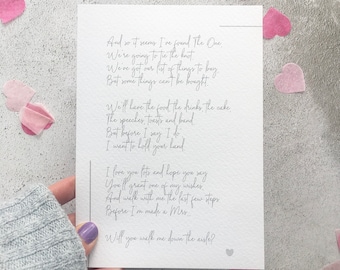 And so it seems I'm found The One
We're going to tie the knot
We've got our list of things to buy
But some things can't be bought
We'll have the food the drinks the cake
The speeches, toasts and band
But before I say I do
I want to hold your hand
I love you lots and hope you say
You'll grant one of my wishes
And walk with me the last few steps
Before I'm made a Mrs.
Will you walk me down the aisle?